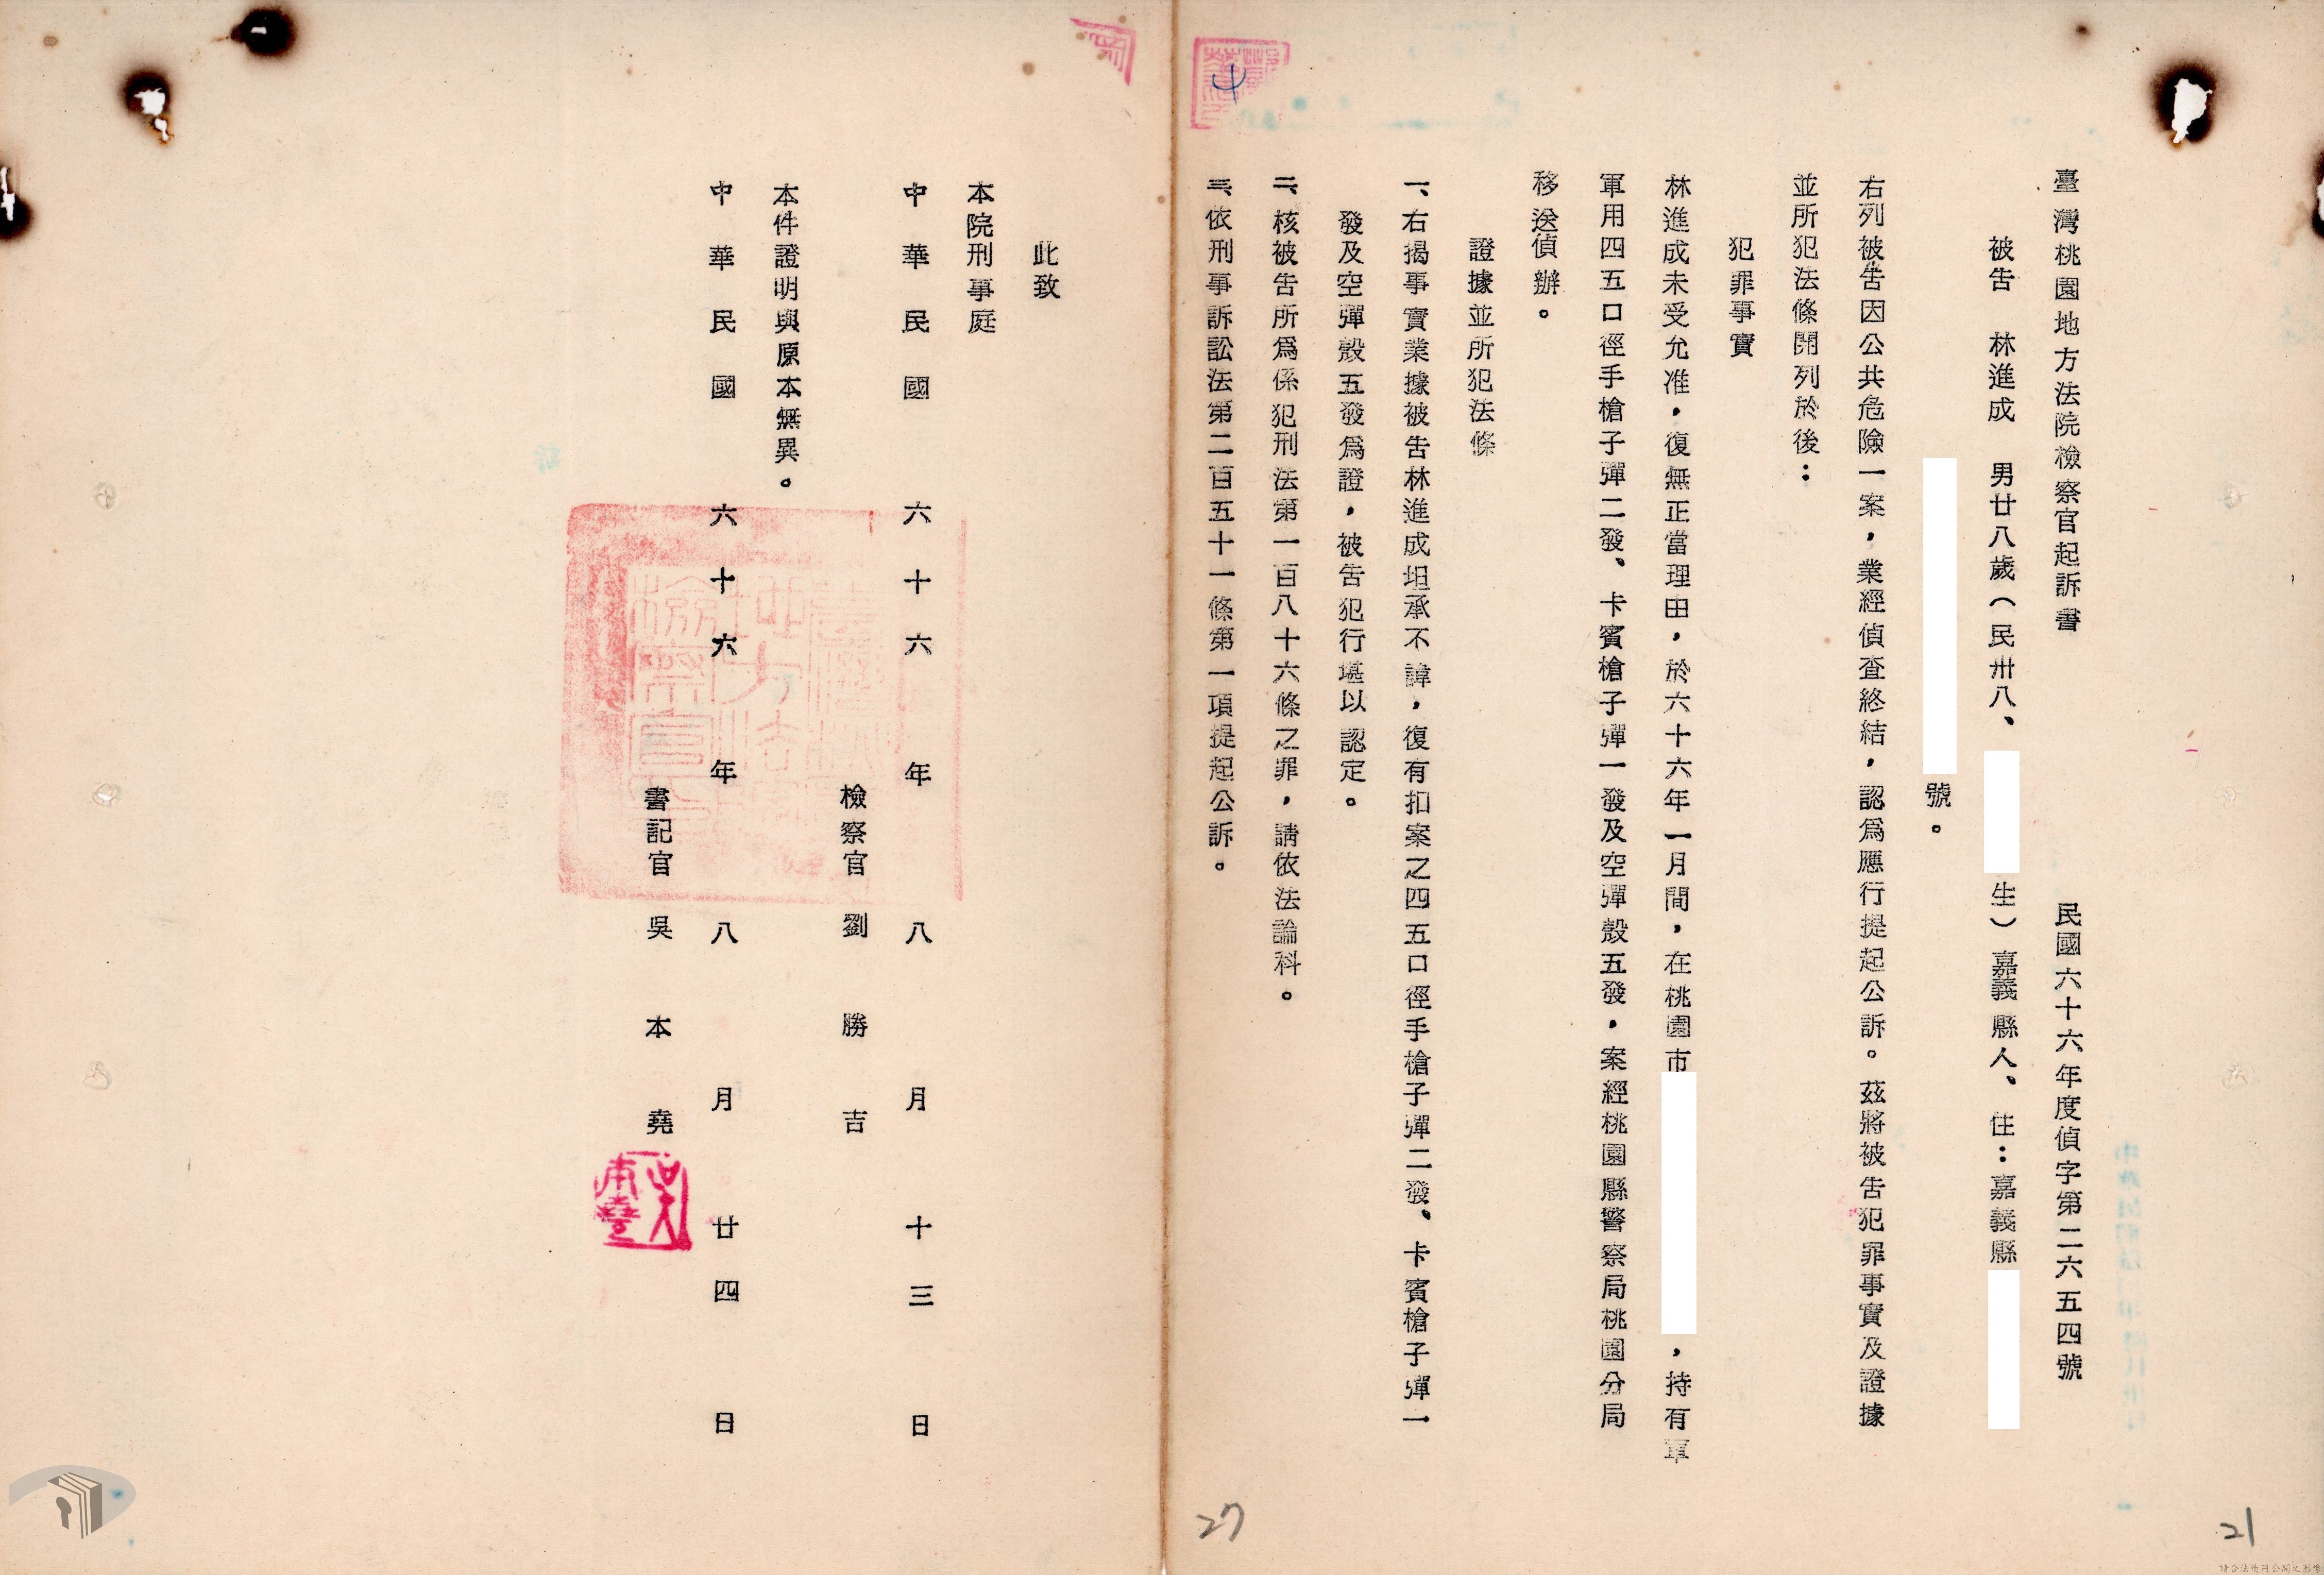 臺灣桃園地方法院檢察官起訴書
民國六十六年度偵字第二六五四號
被告 林進成 男廿八歲（民卅八、
生）嘉義縣人、住：嘉義縣
號。
右列被告因公共危險一案，業經偵查終結，認為應行提起公訴。茲將被告犯罪事實及證據
並所犯法條開列於後：
犯罪事實
林進成未受允准，復無正當理由，於六十六年一月間，在桃園市
，持有軍
軍用四五口徑手槍子彈二發、卡賓槍子彈一發及空彈殼五發，案經桃園縣警察局桃園分局
移送偵辦。
證據並所犯法條
一、右揭事實業據被告林進成坦承不諱，復有扣案之四五口徑手槍子彈二發、卡賓槍子彈一
發及空彈殼五發為證，被告犯行堪以認定。
二、核被告所為係犯刑法第一百八十六條之罪，請依法論科。
三、依刑事訴訟法第二百五十一條第一項提起公訴。
27
21
此致
本院刑事庭
中華民國六十六年八月十三日
檢察官 劉勝吉
本件證明與原本無異。
中華民國六十六年八月廿四日
書記官 吳本堯
吳本堯
請合法使用公開之影像